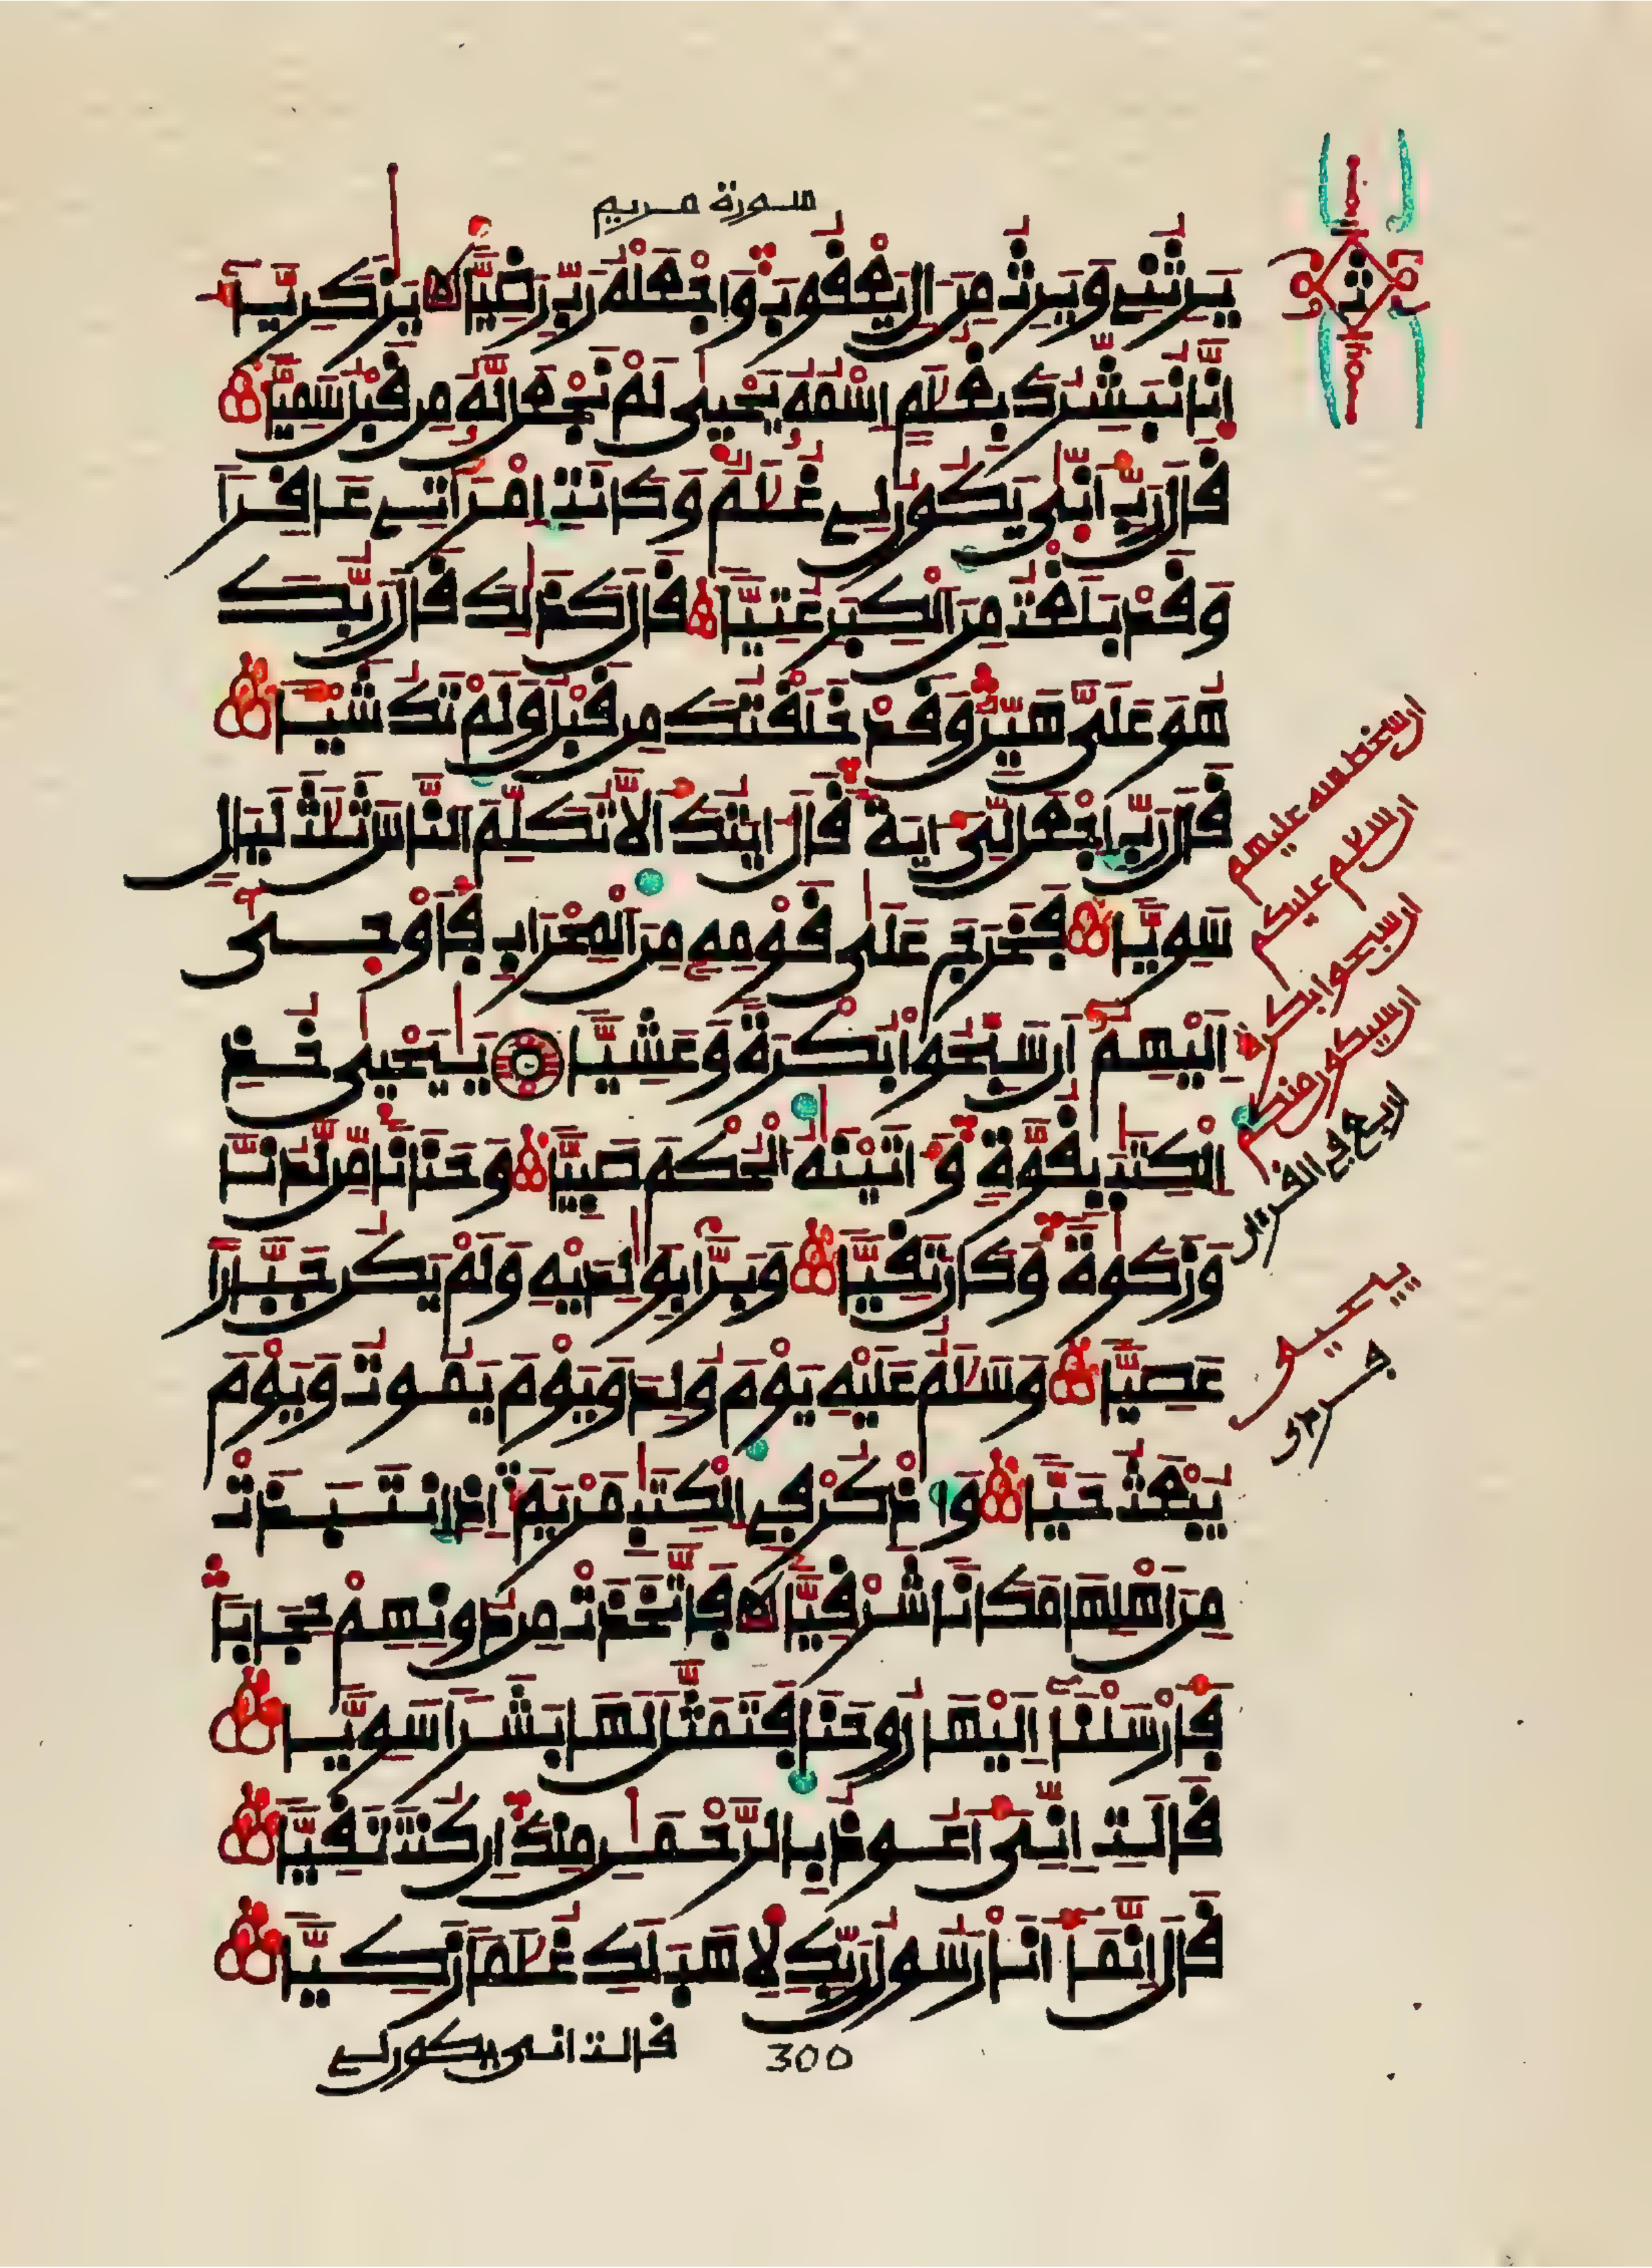 سورة مريم
يَرِثُنِے وَيَرِثُ مِنَ اٰلِ يَعْفُوبَ وَاجْعَلْهُ رَبِّ رَضِيّاً يَٰزَكَرِيَّآءُ
اِنَّا نُبَشِّرُكَ بِغُلَٰمٍ اِسْمُهُۥ يَحْيٜىٰ لَمْ نَجْعَل لَّهُۥ مِن فَبْلُ سَمِيّاً
فَالَ رَبِّ أَنّٜىٰ يَكُونُ لِے غُلَٰمٌ وَكَانَتِ اِمْرَأَتِے عَافِراً
وَفَدْ بَلَغْتُ مِنَ اَلْكِبَرِ عُتِيّاً فَالَ كَذَٰلِكَ فَالَ رَبُّكَ
هُوَ عَلَيَّ هَيِّنٌ وَفَدْ خَلَفْتُكَ مِن فَبْلُ وَلَمْ تَكُ شَيْـٔاً
فَالَ رَبِّ اِجْعَل لِّيَ ءَايَةً فَالَ ءَايَتُكَ أَلَّا تُكَلِّمَ اَلنَّاسَ ثَلَٰثَ لَيَالٍ
سَوِيّاً فَخَرَجَ عَلَىٰ فَوْمِهِۦ مِنَ اَلْمِحْرَابِ فَأَوْحٜىٰٓ
إِلَيْهِمُۥٓ أَن سَبِّحُواْ بُكْرَةً وَعَشِيّاً يَٰيَحْيٜىٰ خُذِ
اِلْكِتَٰبَ بِفُوَّةٍ وَءَاتَيْنَٰهُ اُلْحُكْمَ صَبِيّاً وَحَنَاناً مِّن لَّدُنَّا
وَزَكَوٰةً وَكَانَ تَفِيّاً وَبَرّاً بِوَٰلِدَيْهِ وَلَمْ يَكُن جَبَّاراً
عَصِيّاً وَسَلَٰمٌ عَلَيْهِ يَوْمَ وُلِدَ وَيَوْمَ يَمُوتُ وَيَوْمَ
يُبْعَثُ حَيّاً وَاذْكُرْ فِے اِلْكِتَٰبِ مَرْيَمَ إِذِ اِنتَبَذَتْ
مِنَ اَهْلِهَا مَكَاناً شَرْفِيّاً فَاتَّخَذَتْ مِن دُونِهِمْ حِجَاباً
فَأَرْسَلْنَآ إِلَيْهَا رُوحَنَا فَتَمَثَّلَ لَهَا بَشَراً سَوِيّاً
فَالَتِ اِنِّيَ أَعُوذُ بِالرَّحْمَٰنِ مِنكَ إِن كُنتَ تَفِيّاً
فَالَ إِنَّمَآ أَنَا رَسُولُ رَبِّكِ لِأَهَبَ لَكِ غُلَٰماً زَكِيّاً
فالت انى يكون لے
300
ان سخط الله عليهم
ان سلم عليكم
ان سبحوا بكرة
ان سيكون منكم
لا ربع فے الفرءان